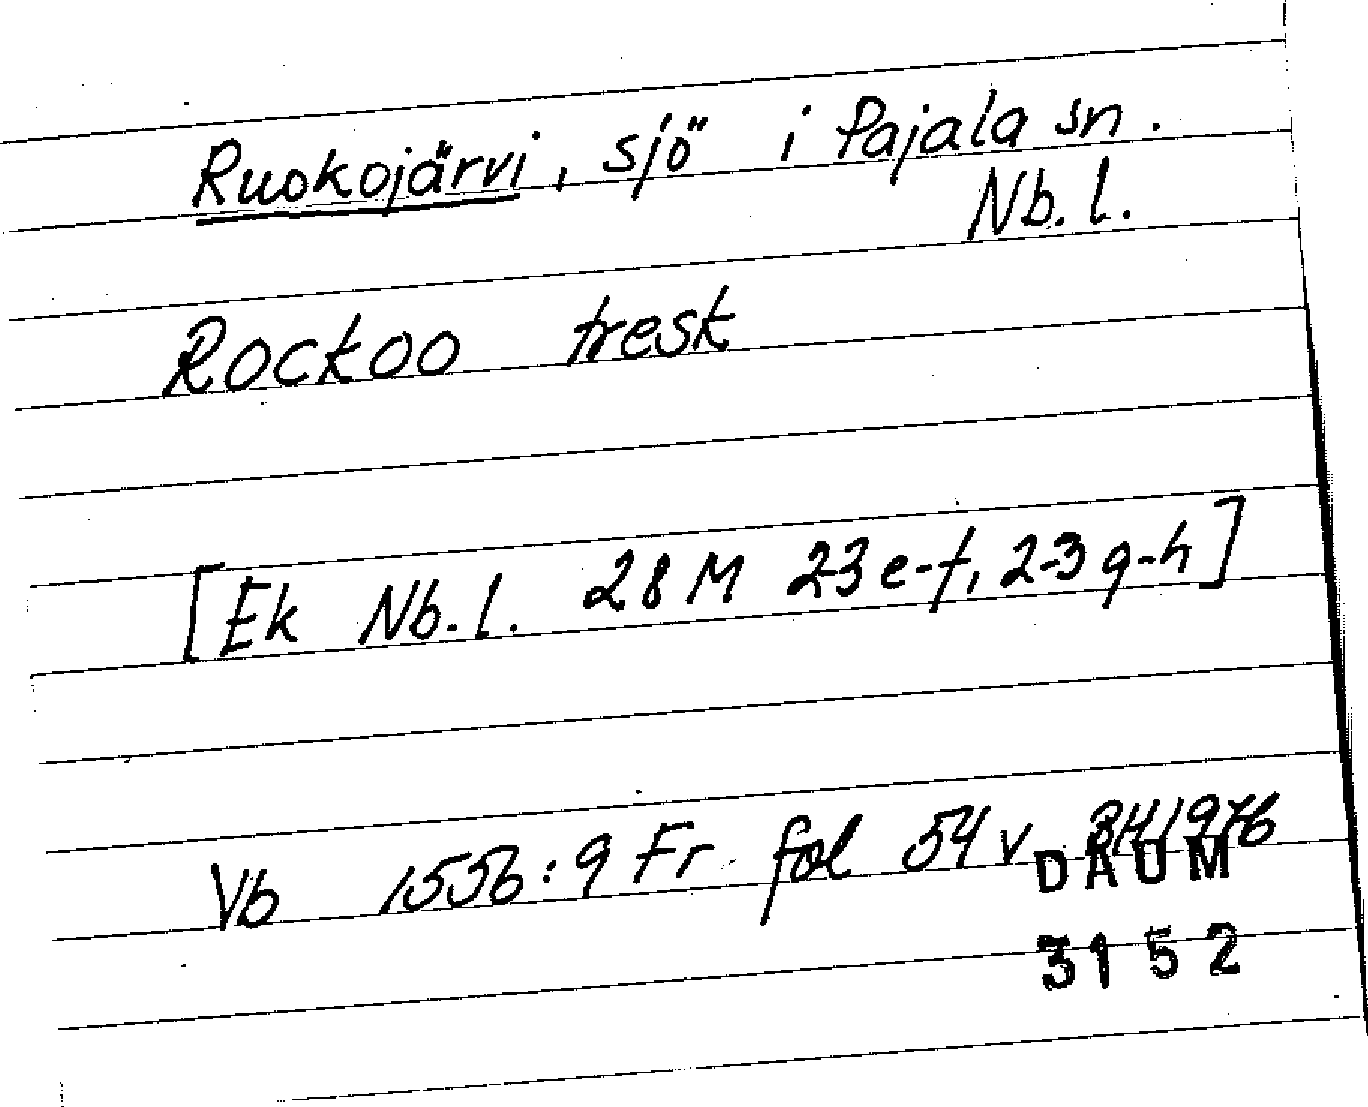 Ruokojärvi, sjö i Pajala sn.
Nb. l.
Rockoo tresk
[Ek Nb. l. 28 M 2-3 e-f, 2-3 g-h]
Vb 1556:9 Fr fol 54 v BH 1976
DAUM
3152